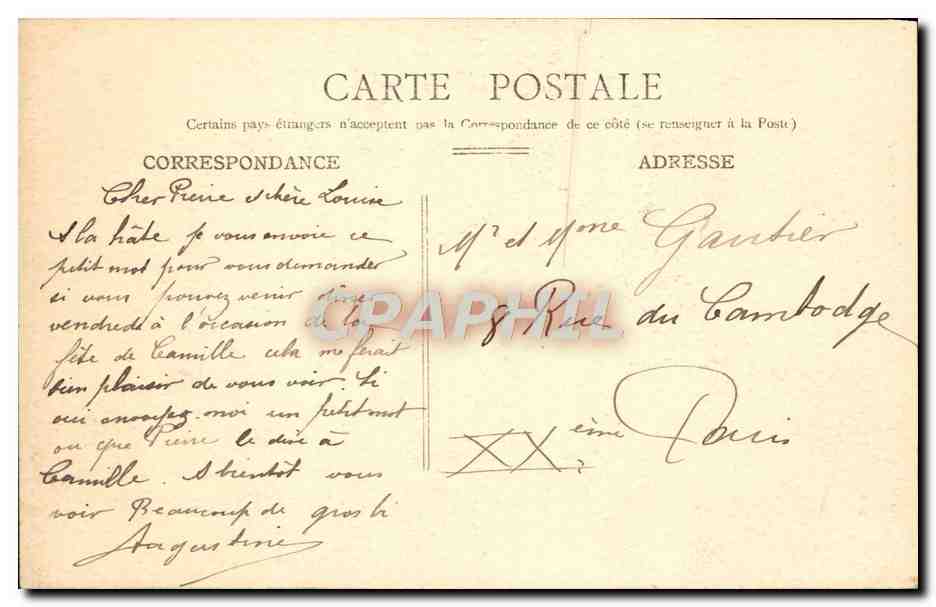 CARTE POSTALE
Certains pays étrangers n'acceptent pas la Correspondance de ce côté (se renseigner à la Poste)
CORRESPONDANCE
Cher Pierre et chère Louise
A la hâte je vous envoie ce
petit mot pour vous demander
si vous pouvez venir diner
vendredi à l'occasion de la
fête de Camille cela me ferait
bien plaisir de vous voir. Si
oui envoyez-moi un petit mot
ou que Pierre le dise à
Camille. A bientôt vous
voir Beaucoup de gros bi
Augustine
ADRESSE
Mr et Mme Gautier
8 Rue du Cambodge
Paris
XXème
CPAPHIL